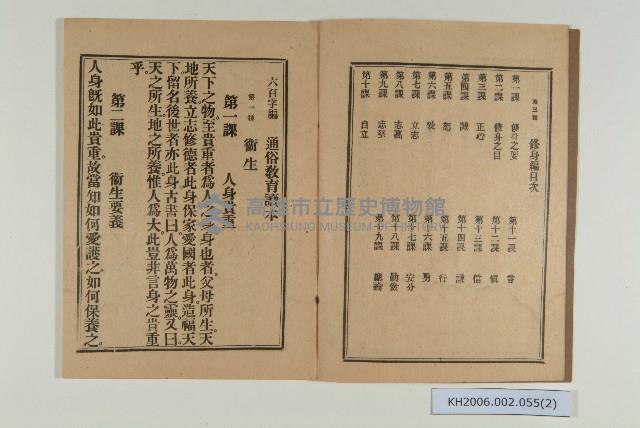 修身編目次
第一課 修身之要
第二課 修身之目
第三課 正心
第四課
第五課 恕
第六課
第七課 立志
第八課 志高
第九課 志堅
第十課 自立
第十一課
第十二課 慎
第十三課 信
第十四課 謙
第十五課 行
第十六課 勇
第十七課 安分
第十八課 勤儉
第十九課 總論
六百字編 通俗教育讀本
第一課 衛生 人身貴重
天下之物。至貴重者爲人之身。身也者。父母所生。天
地所養。立志修德者此身。保家愛國者此身。造福天
下。留名後世者。亦此身。古書曰。人爲萬物之靈。又曰。
天之所生。地之所養。惟人爲大。此豈非言身之貴重
乎。
第二課 衛生要義
人身旣如此貴重。故當知如何愛護之。如何保養之。
高雄市立歷史博物館
KAOHSIUNG MUSEUM OF HISTORY
KH2006.002.055(2)